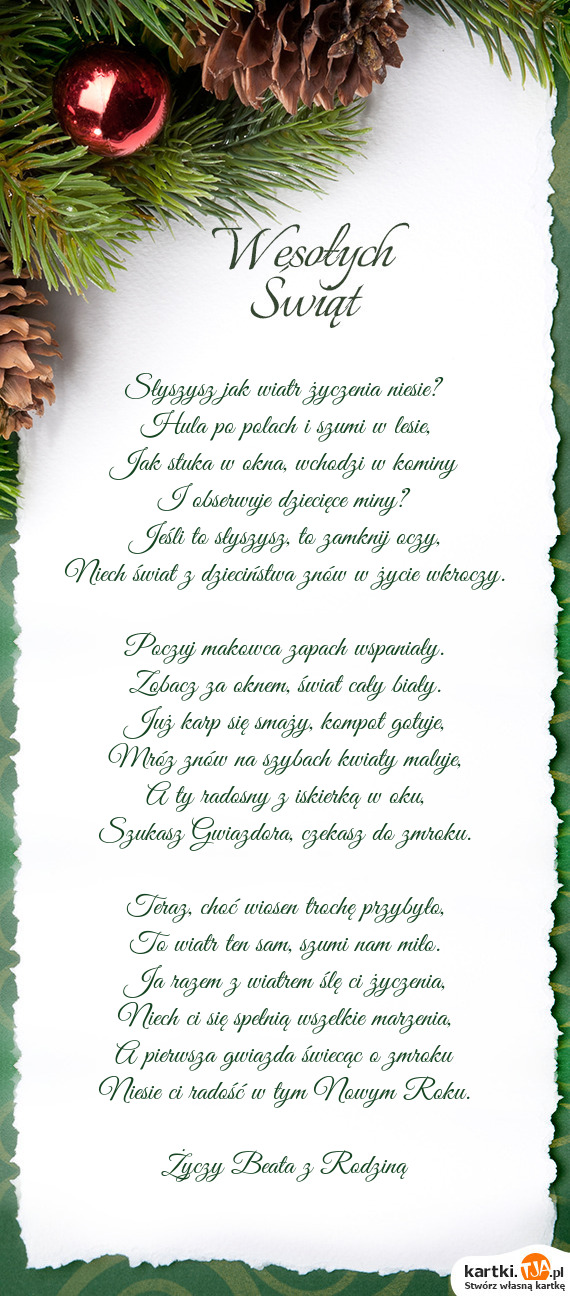 Wesołych
Świąt
Słyszysz jak wiatr życzenia niesie?
Hula po polach i szumi w lesie,
Jak stuka w okna, wchodzi w kominy
I obserwuje dziecięce miny?
Jeśli to słyszysz, to zamknij oczy,
Niech świat z dzieciństwa znów w życie wkroczy.
Poczuj makowca zapach wspaniały.
Zobacz za oknem, świat cały biały.
Już karp się smaży, kompot gotuje,
Mróz znów na szybach kwiaty maluje,
A ty radosny z iskierką w oku,
Szukasz Gwiazdora, czekasz do zmroku.
Teraz, choć wiosen trochę przybyło,
To wiatr ten sam, szumi nam miło.
Ja razem z wiatrem ślę ci życzenia,
Niech ci się spełnią wszelkie marzenia,
A pierwsza gwiazda świecąc o zmroku
Niesie ci radość w tym Nowym Roku.
Życzy Beata z Rodziną
kartki.TJA.pl
Stwórz własną kartkę